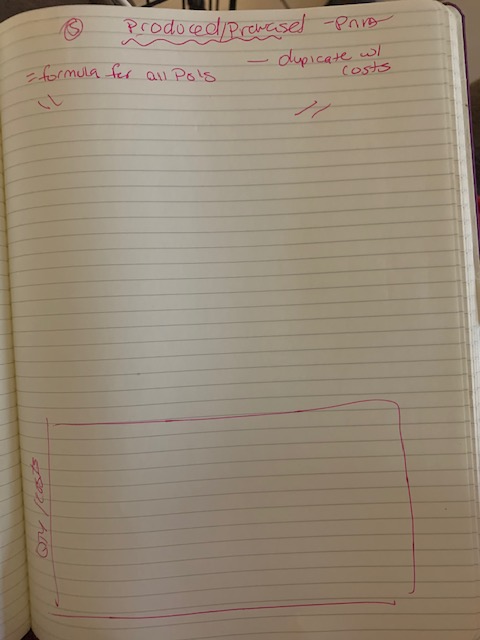 ⑤ Produced/Prchased - Print
= formula for all Pols - duplicate w/
costs
\\ //
QTY / COSTS